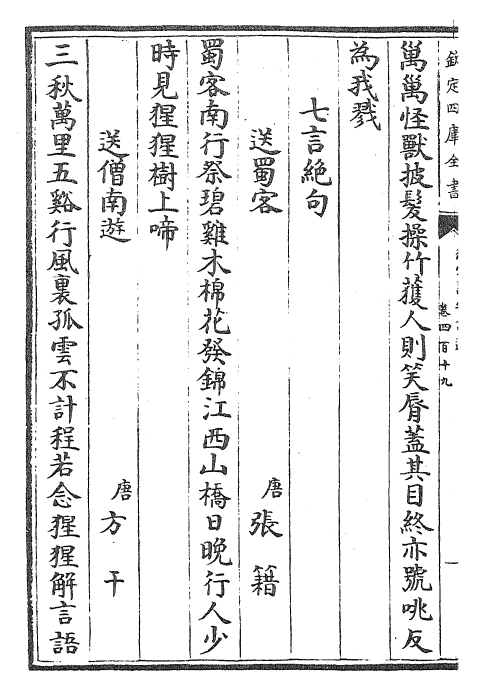 欽定四庫全書
卷四百十九
萬萬怪獸披髮操竹蒦人則笑脣蓋其目終亦號咷反
為我戮
七言絶句
送蜀客
唐張籍
蜀客南行祭碧雞木棉花發錦江西山橋日晚行人少
時見猩猩樹上啼
送僧南遊
唐方干
三秋萬里五谿行風裏孤雲不計程若念猩猩解言語